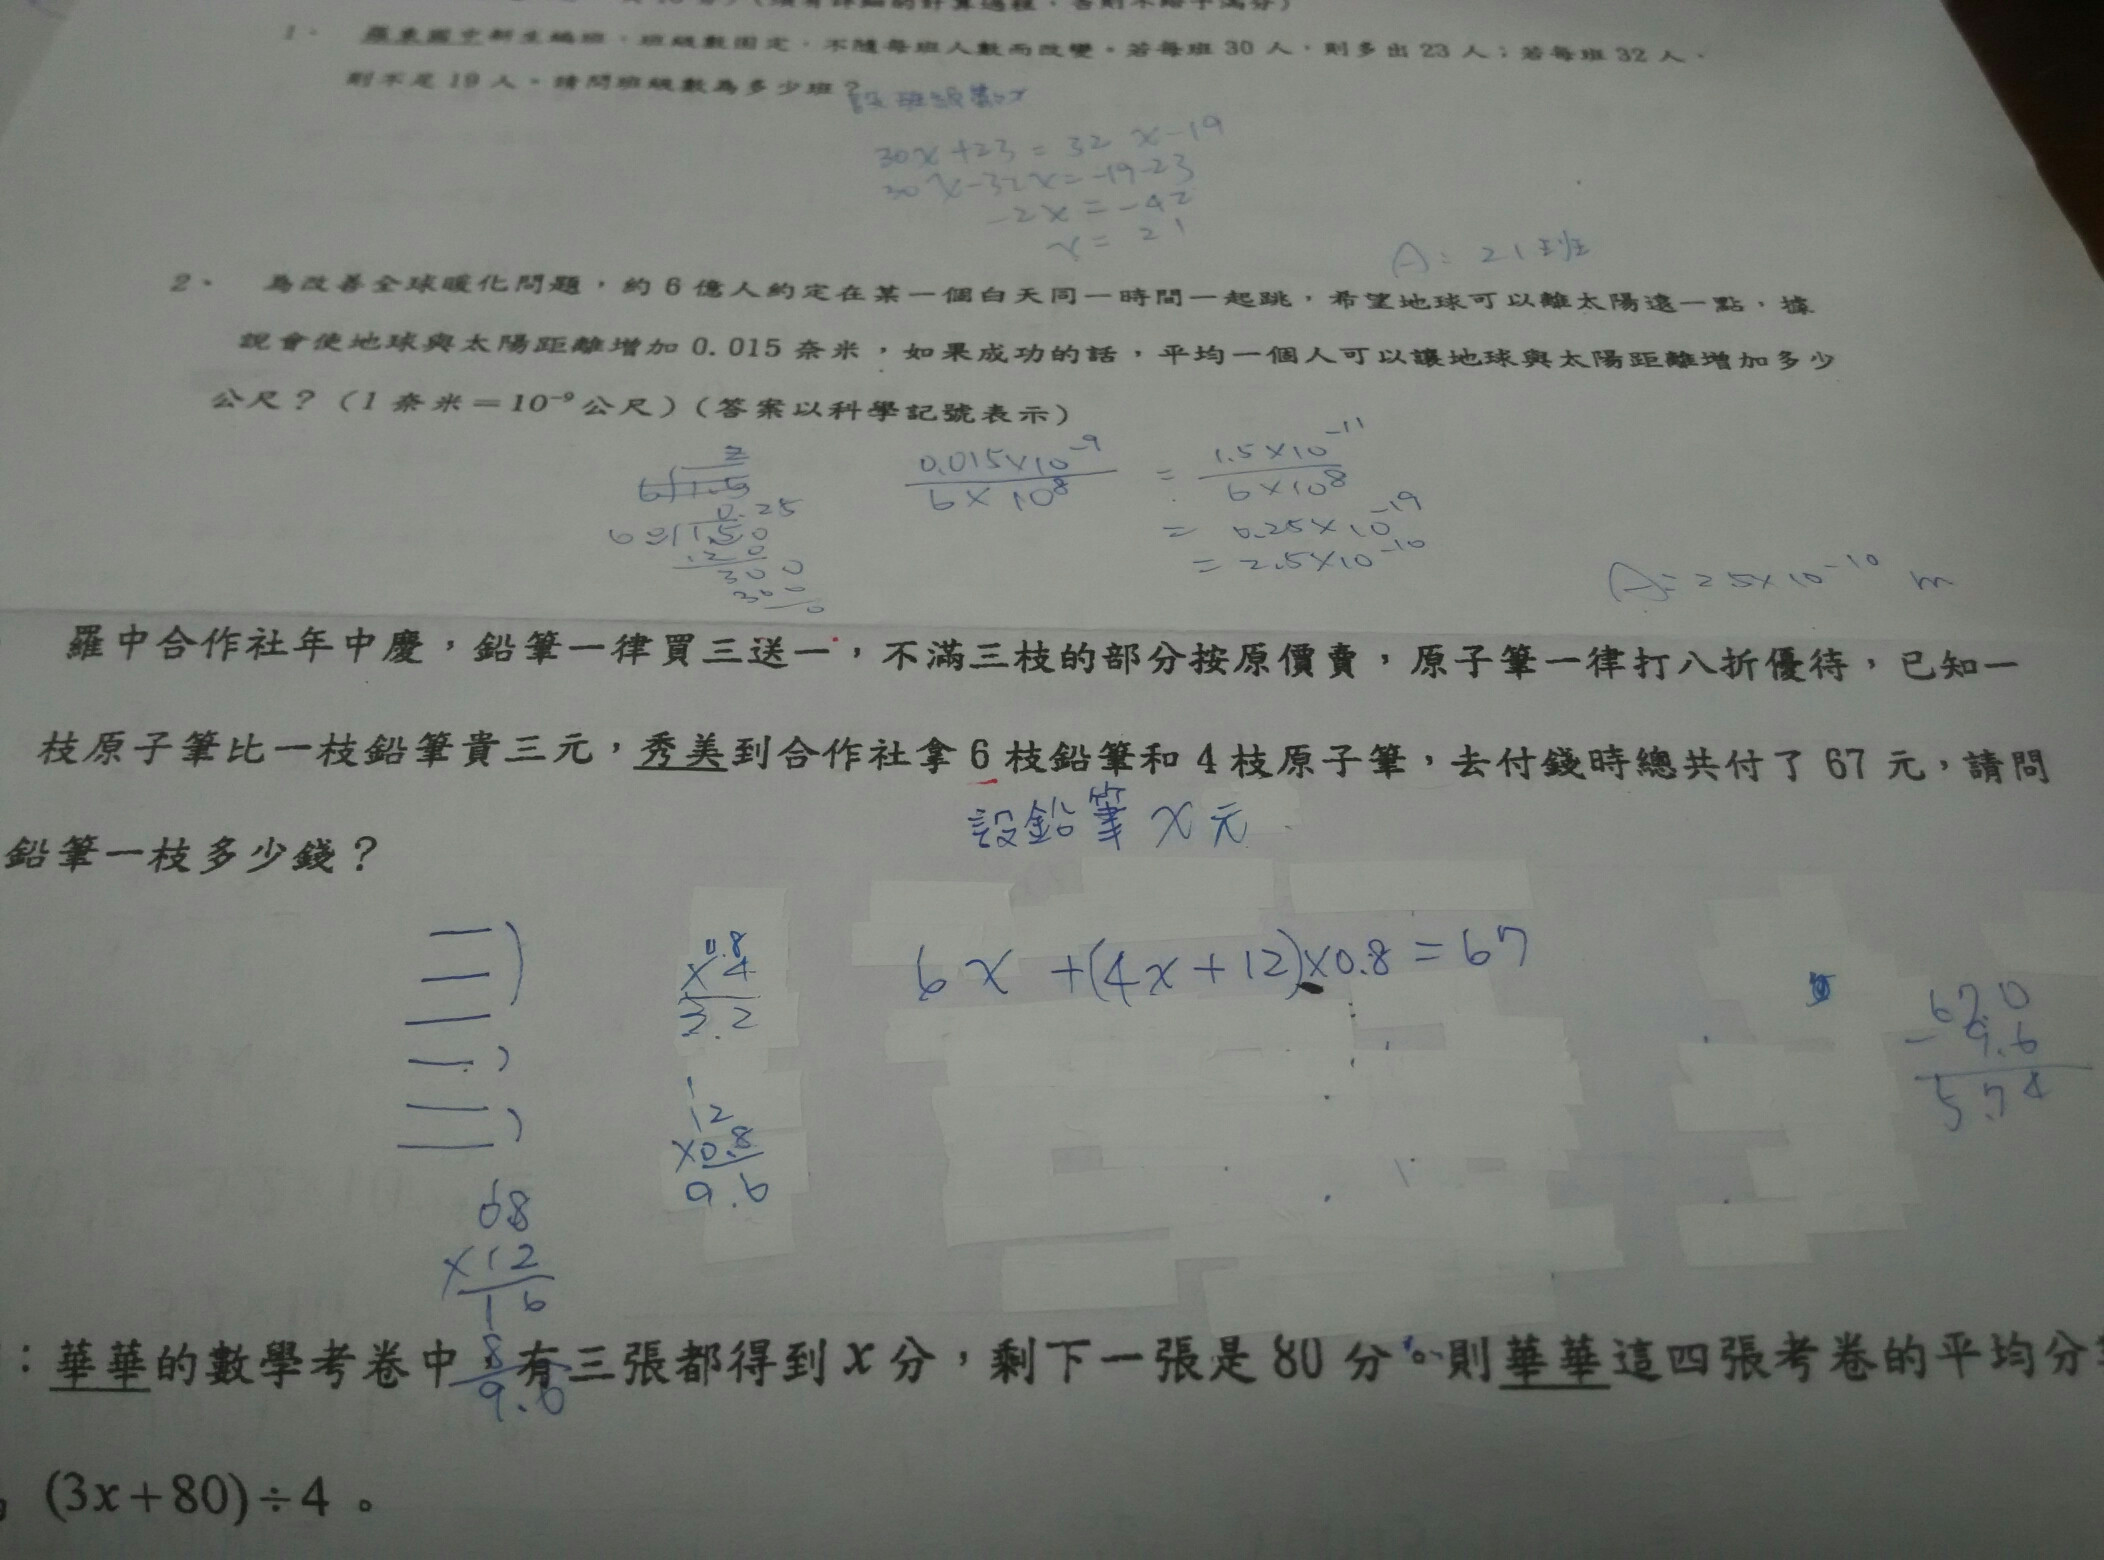 1、 羅東國中新生編班，班級數固定，不隨每班人數而改變。若每班30人，則多出23人；若每班32人，
則不足19人。請問班級數為多少班？設班級數x
30x+23=32x-19
30x-32x=-19-23
-2x=-42
x=21
A:21班
2、 為改善全球暖化問題，約6億人約定在某一個白天同一時間一起跳，希望地球可以離太陽遠一點，據
說會使地球與太陽距離增加0.015奈米，如果成功的話，平均一個人可以讓地球與太陽距離增加多少
公尺？（1奈米＝10⁻⁹公尺）（答案以科學記號表示）
0.015×10⁻⁹ = 1.5×10⁻¹¹
6×10⁸ 6×10⁸
= 0.25×10⁻¹⁹
= 2.5×10⁻¹⁰
0.25
A=2.5×10⁻¹⁰ m
羅中合作社年中慶，鉛筆一律買三送一，不滿三枝的部分按原價賣，原子筆一律打八折優待，已知一
枝原子筆比一枝鉛筆貴三元，秀美到合作社拿6枝鉛筆和4枝原子筆，去付錢時總共付了67元，請問
鉛筆一枝多少錢？
設鉛筆x元
6x+(4x+12)×0.8=67
0.8
×4
3.2
12
×0.8
9.6
67.0
-9.6
57.4
68
×12
16
8
9.6
：華華的數學考卷中，有三張都得到x分，剩下一張是80分，則華華這四張考卷的平均分
(3x+80)÷4。